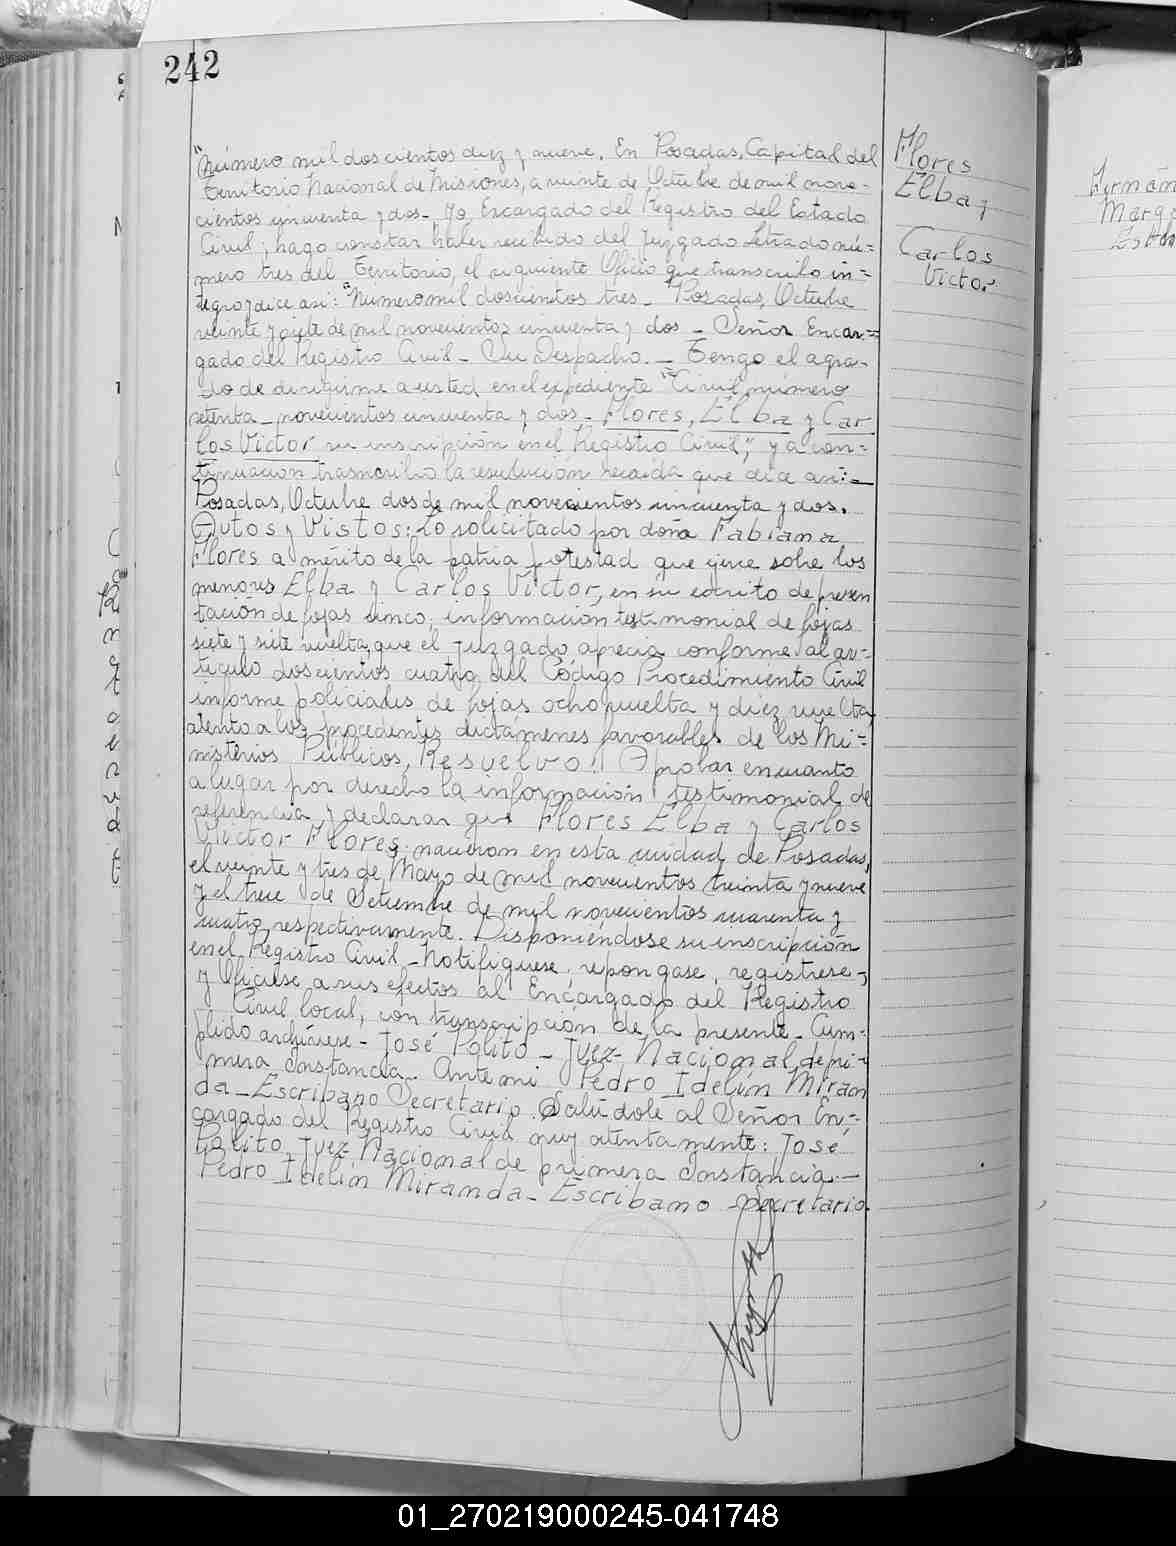 242
"Número mil doscientos diez y nueve. En Posadas, Capital del
Territorio Nacional de Misiones, a veinte de Octubre de mil nove-
cientos cincuenta y dos-, Yo, Encargado del Registro del Estado
Civil; hago constar haber recibido del Juzgado Letrado nú-=
mero tres del Territorio, el siguiente Oficio que transcribo ín-=
tegro y dice así: "Número mil doscientos tres - Posadas, Octubre
veinte y siete de mil novecientos cincuenta y dos - Señor Encar-=
gado del Registro Civil - Su Despacho. - Tengo el agra-
do de dirigirme a usted, en el expediente "Civil número
setenta - novecientos cincuenta y dos - Flores, Elba y Car
los Victor su inscripción en el Registro Civil", y a con-=
tinuacion trasncribo la resolución recaida que dice así:-
Posadas, Octubre dos de mil novecientos cincuenta y dos.
Autos y Vistos: Lo solicitado por doña Fabiana
Flores a mérito de la patria potestad que ejerce sobre los
menores Elba y Carlos Victor, en su escrito de presen
tación de fojas cinco; información testimonial de fojas
siete y siete vuelta, que el Juzgado aprecia conforme al ar-=
tículo doscientos cuatro del Código Procedimiento Civil
informe policiales de fojas ocho vuelta y diez vuelta
atento a los procedentes dictámenes favorables de los Mi-=
nisterios Públicos, Resuelvo: Aprobar en cuanto
a lugar por derecho la información testimonial de
referencia y declarar que Flores Elba y Carlos
Victor Flores; nacieron en esta ciudad de Posadas,
el veinte y tres de Mayo de mil novecientos treinta y nueve
y el trece de Setiembre de mil novecientos cuarenta y
cuatro respectivamente. Disponiéndose su inscripción
en el Registro Civil - Notifíquese, repongase, regístrese,
y Ofíciese a sus efectos al Encargado del Registro
Civil local, con transcripción de la presente - Cum-
plido archívese - José Polito - Juez Nacional de pri-
mera Instancia. Ante mi Pedro Idelín Miran
da - Escribano Secretario. Salúdole al Señor En-=
cargado del Registro Civil muy atentamente: José
Polito - Juez Nacional de primera Instancia. -
Pedro Idelín Miranda - Escribano Secretario.
Flores
Elba y
Carlos
Victor
01_270219000245-041748